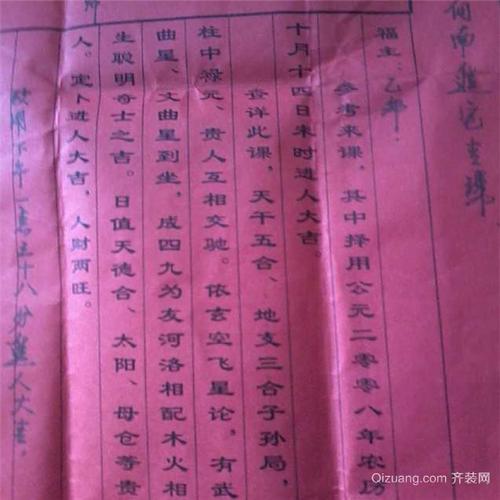 向南
福主：乙
参考来课，其中择用公元二零零八年农历
十月十四日未时进人大吉。
查详此课，天干五合、地支三合子孙局，
柱中禄元、贵人互相交驰。依玄空飞星论，有武
曲星、文曲星到坐，成四九为友河洛相配木火相
生聪明奇士之吉。日值天德合、太阳、母仓等贵
人。定卜进人大吉，人财两旺。
时用下午一点五十八分进人大吉。
Qizuang.com 齐装网